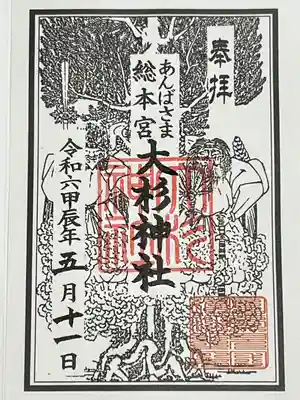 奉拝
あんばさま
総本宮
大杉神社
令和六甲辰年五月十一日